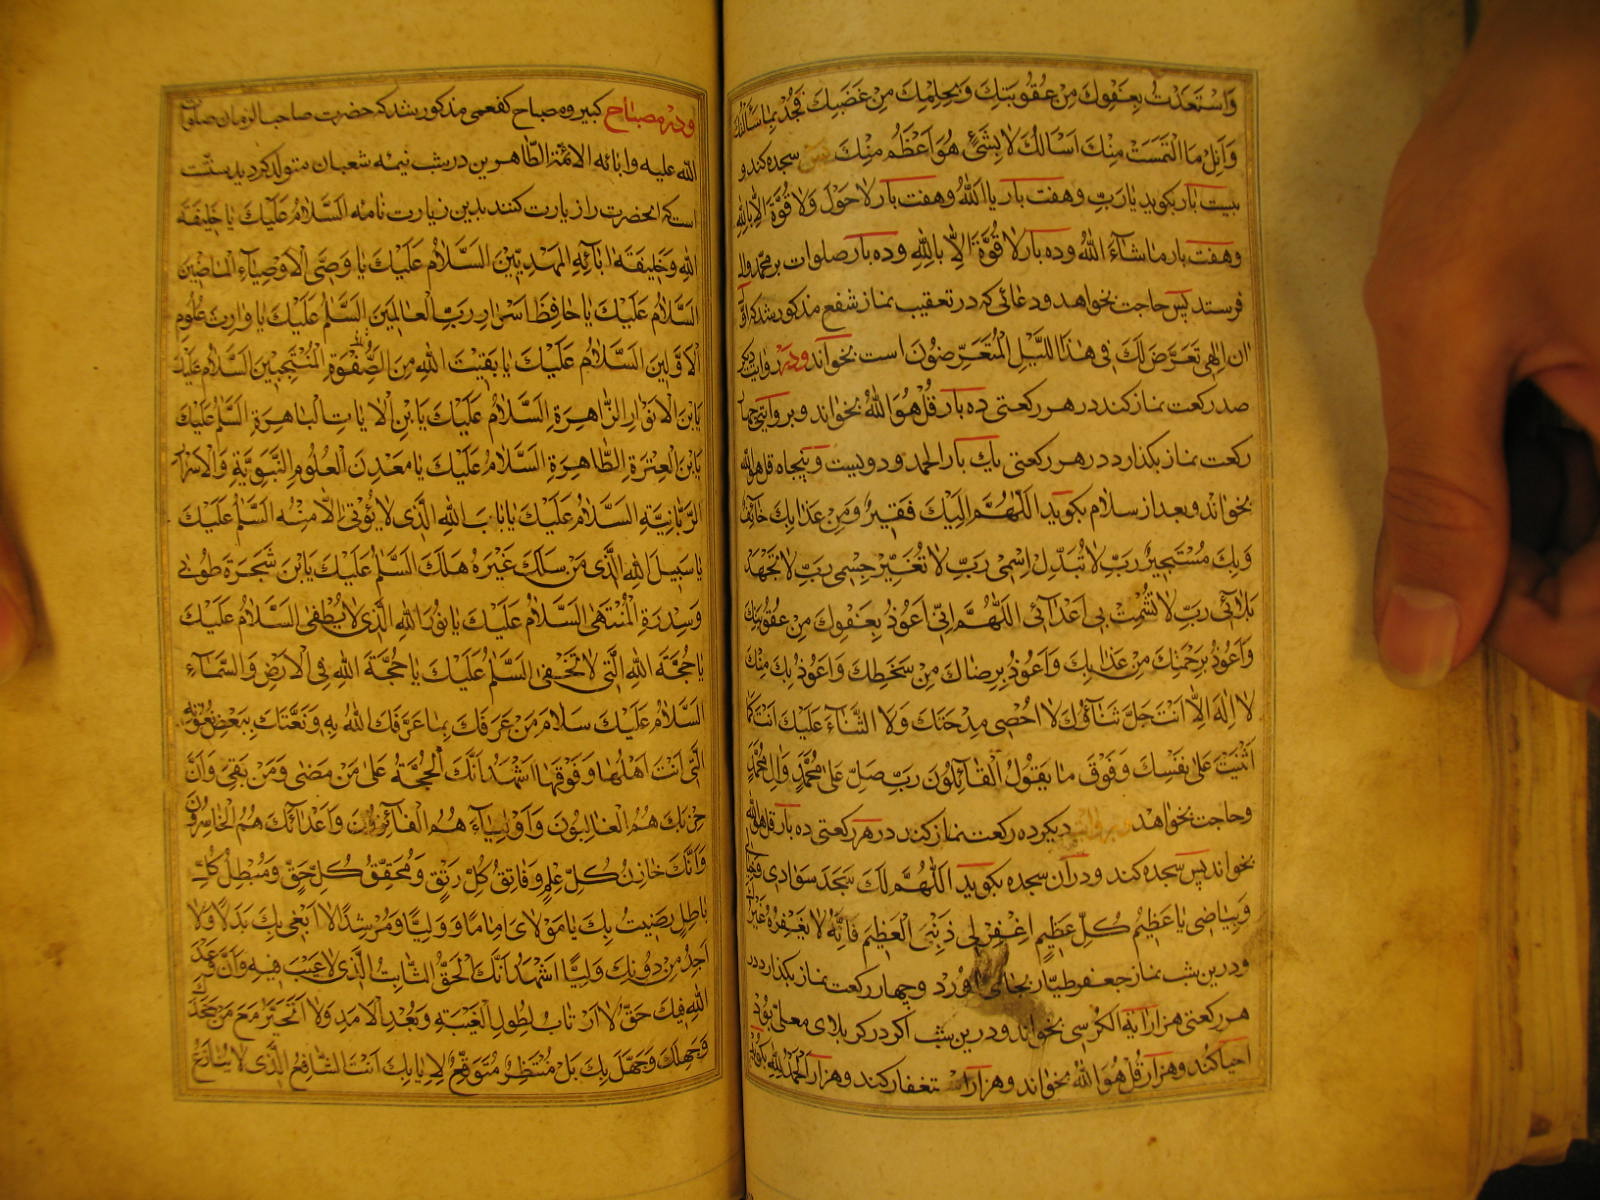 وَاسْتَعَذْتُ بِعَفْوِكَ مِنْ عُقُوبَتِكَ وَبِحِلْمِكَ مِنْ غَضَبِكَ فَجُدْ بِمَا سَأَلْتُكَ
وَأَنِلْ مَا الْتَمَسْتُ مِنْكَ اَسْأَلُكَ لَا بِشَيْءٍ هُوَ اَعْظَمُ مِنْكَ پس سجده کند و
بیست بار بکوید یَا رَبِّ وهفت بار یا اَللّٰهُ وهفت بار لَا حَوْلَ وَلَا قُوَّةَ اِلَّا بِاللّٰهِ
وهفت بار مَا شَاءَ اللّٰهُ وده بار لَا قُوَّةَ اِلَّا بِاللّٰهِ وده بار صلوات بر محمد وال
فرستد پس حاجت بخواهد ودعائی که در تعقیب نماز شفع مذکور شد که او
ان اِلٰهِی تَعَرَّضَ لَكَ فِی هٰذَا اللَّیْلِ الْمُتَعَرِّضُونَ است بخواند ودر روایت دیگر
صد رکعت نماز کند در هر رکعتی ده بار قُلْ هُوَ اللّٰهُ بخواند و بروایتی چهار
رکعت نماز بکذارد در هر رکعتی یك بار الحمد و دویست وپنجاه قل هو الله
بخواند وبعد از سلام بکوید اَللّٰهُمَّ اِلَیْكَ فَقِیرٌ وَمِنْ عَذَابِكَ خَائِفٌ
وَبِكَ مُسْتَجِیرٌ رَبِّ لَا تُبَدِّلْ اِسْمِی رَبِّ لَا تُغَیِّرْ جِسْمِی رَبِّ لَا تَجْهَدْ
بَلَائِی رَبِّ لَا تُشْمِتْ بِی اَعْدَائِی اَللّٰهُمَّ اِنِّی اَعُوذُ بِعَفْوِكَ مِنْ عُقُوبَتِكَ
وَاَعُوذُ بِرَحْمَتِكَ مِنْ عَذَابِكَ وَاَعُوذُ بِرِضَاكَ مِنْ سَخَطِكَ وَاَعُوذُ بِكَ مِنْكَ
لَا اِلٰهَ اِلَّا اَنْتَ جَلَّ ثَنَاؤُكَ لَا اُحْصِی مِدْحَتَكَ وَلَا الثَّنَاءَ عَلَیْكَ اَنْتَ کَمَا
اَثْنَیْتَ عَلٰی نَفْسِكَ وَفَوْقَ مَا یَقُولُ الْقَائِلُونَ رَبِّ صَلِّ عَلٰی مُحَمَّدٍ وَاٰلِ مُحَمَّدٍ
وحاجت بخواهد دیکر ده رکعت نماز کند در هر رکعتی ده بار قل هو الله
بخواند پس سجده کند ودر آن سجده بکوید اَللّٰهُمَّ لَكَ سَجَدَ سَوَادِی وَخَیَالِی
وَبَیَاضِی یَا عَظِیمُ کُلِّ عَظِیمٍ اِغْفِرْ لِی ذَنْبِیَ الْعَظِیمَ فَاِنَّهُ لَا یَغْفِرُهُ غَیْرُكَ
ودرین شب نماز جعفر طیّار بجای آورد وچهار رکعت نماز بکذارد در
هر رکعتی هزار آیة الکرسی بخواند ودرین شب اکر در کربلای معلّی بود
احیا کند وهزار قُلْ هُوَ اللّٰهُ بخواند وهزار استغفار کند وهزار اَلْحَمْدُ لِلّٰهِ بکوید
ودر مصباح کبیر و مصباح کفعمی مذکور شد که حضرت صاحب الزمان صلوات
اللّٰه علیه وابائه الائمّة الطّاهرین در شب نیمه شعبان متولد کردید سنّت
است که انحضرت را زیارت کنند بدین زیارت نامه اَلسَّلَامُ عَلَیْكَ یَا خَلِیفَةَ
اللّٰهِ وَخَلِیفَةَ اٰبَائِهِ الْمَهْدِیِّینَ اَلسَّلَامُ عَلَیْكَ یَا وَصِیَّ الْاَوْصِیَاءِ الْمَاضِینَ
اَلسَّلَامُ عَلَیْكَ یَا حَافِظَ اَسْرَارِ رَبِّ الْعَالَمِینَ اَلسَّلَمُ عَلَیْكَ یَا وَارِثَ عُلُومِ
الْاَوَّلِینَ اَلسَّلَامُ عَلَیْكَ یَا بَقِیَّتَ اللّٰهِ مِنَ الصَّفْوَةِ الْمُنْتَجَبِینَ اَلسَّلَامُ عَلَیْكَ
یَابْنَ الْاَنْوَارِ الزَّاهِرَةِ اَلسَّلَامُ عَلَیْكَ یَابْنَ الْاٰیَاتِ الْبَاهِرَةِ اَلسَّلَمُ عَلَیْكَ
یَابْنَ الْعِتْرَةِ الطَّاهِرَةِ اَلسَّلَامُ عَلَیْكَ یَا مَعْدِنَ الْعُلُومِ النَّبَوِیَّةِ وَالْاَسْرَارِ
الرَّبَّانِیَّةِ اَلسَّلَامُ عَلَیْكَ یَا بَابَ اللّٰهِ الَّذِی لَا یُؤْتٰی اِلَّا مِنْهُ اَلسَّلَمُ عَلَیْكَ
یَا سَبِیلَ اللّٰهِ الَّذِی مَنْ سَلَكَ غَیْرَهُ هَلَكَ اَلسَّلَمُ عَلَیْكَ یَابْنَ شَجَرَةِ طُوبٰی
وَسِدْرَةِ الْمُنْتَهٰی اَلسَّلَامُ عَلَیْكَ یَا نُورَ اللّٰهِ الَّذِی لَا یُطْفٰی اَلسَّلَامُ عَلَیْكَ
یَا حُجَّةَ اللّٰهِ الَّتِی لَا تَخْفٰی اَلسَّلَمُ عَلَیْكَ یَا حُجَّةَ اللّٰهِ فِی الْاَرْضِ وَالسَّمَاءِ
اَلسَّلَامُ عَلَیْكَ سَلَامَ مَنْ عَرَفَكَ بِمَا عَرَّفَكَ اللّٰهُ بِهِ وَنَعَتَكَ بِبَعْضِ نُعُوتِهِ
الَّتِی اَنْتَ اَهْلُهَا وَفَوْقَهَا اَشْهَدُ اَنَّكَ الْحُجَّةُ عَلٰی مَنْ مَضٰی وَمَنْ بَقِیَ وَاَنَّ
حِزْبَكَ هُمُ الْغَالِبُونَ وَاَوْلِیَاءَكَ هُمُ الْفَائِزُونَ وَاَعْدَائَكَ هُمُ الْخَاسِرُونَ
وَاَنَّكَ خَازِنُ کُلِّ عِلْمٍ وَفَاتِقُ کُلِّ رَتْقٍ وَمُحَقِّقُ کُلِّ حَقٍّ وَمُبْطِلُ کُلِّ
بَاطِلٍ رَضِیتُ بِكَ یَا مَوْلَایَ اِمَامًا وَوَلِیًّا وَمُرْشِدًا لَا اَبْتَغِی بِكَ بَدَلًا وَلَا
اَجِدُ مِنْ دُونِكَ وَلِیًّا اَشْهَدُ اَنَّكَ الْحَقُّ الثَّابِتُ الَّذِی لَا عَیْبَ فِیهِ وَاَنَّ وَعْدَ
اللّٰهِ فِیكَ حَقٌّ لَا اَرْتَابُ لِطُولِ الْغَیْبَةِ وَبُعْدِ الْاَمَدِ وَلَا اَتَحَیَّرُ مَعَ مَنْ جَحَدَكَ
وَجَهِلَكَ وَجَهِلَ بِكَ بَلْ مُنْتَظِرٌ مُتَوَقِّعٌ لِاِیَابِكَ اَنْتَ الشَّافِعُ الَّذِی لَا یُنَازَعُ